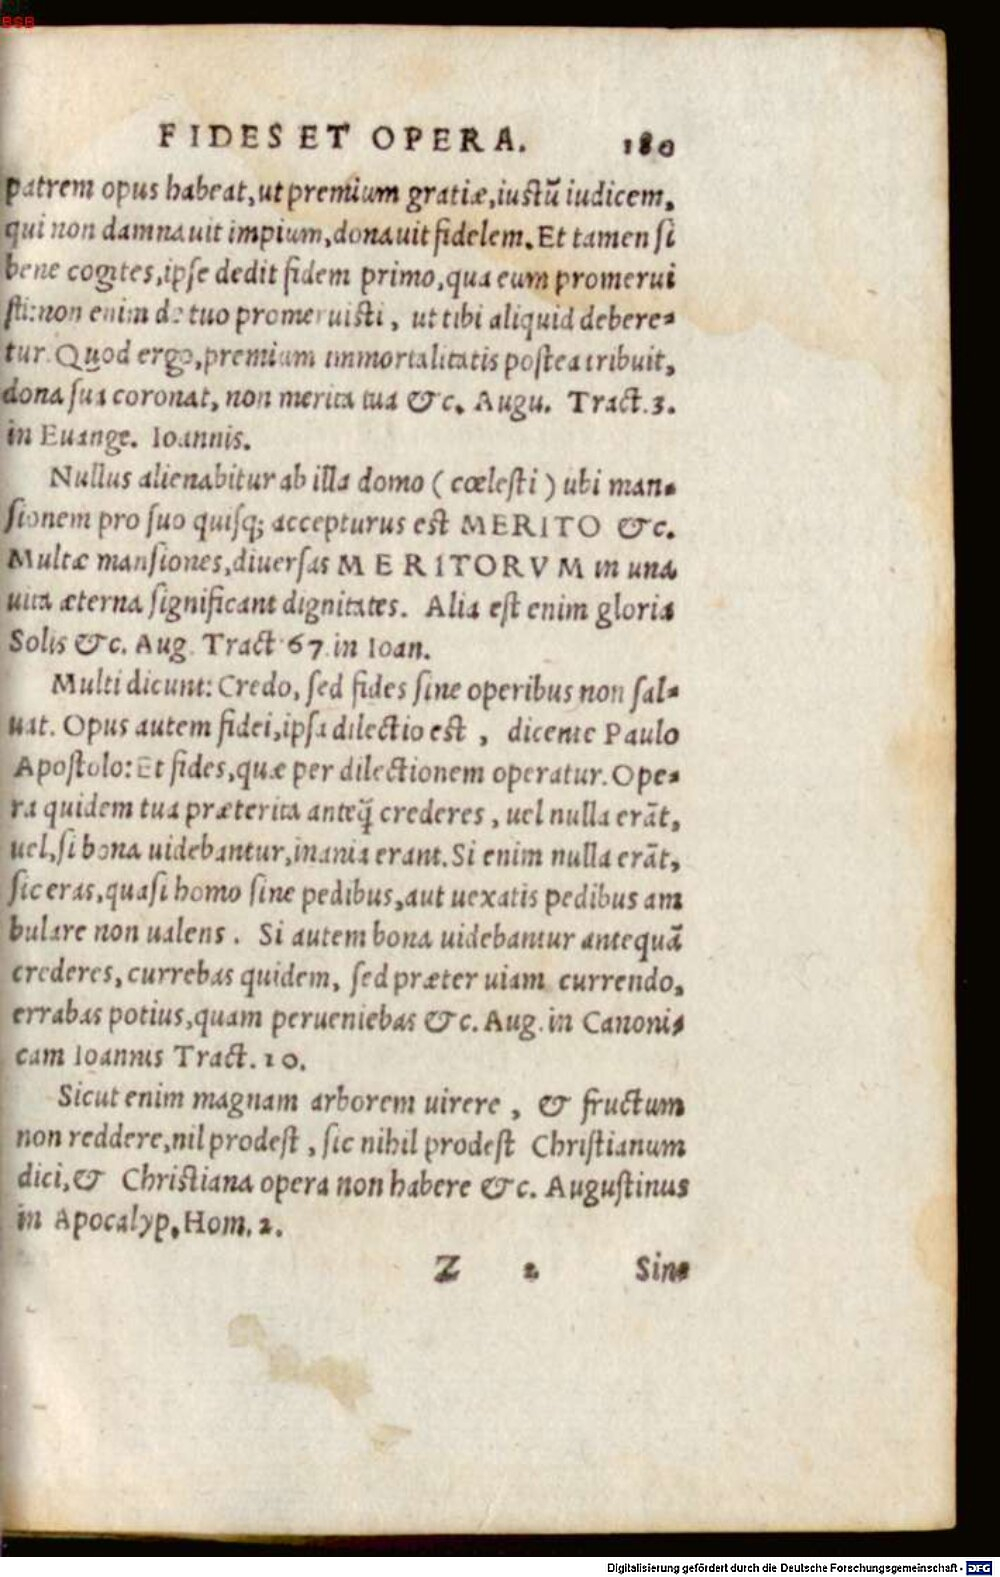 BSB
FIDES ET OPERA. 180
patrem opus habeat, ut premium gratiæ, iustū iudicem,
qui non damnauit impium, donauit fidelem. Et tamen si
bene cogites, ipse dedit fidem primo, qua eum promerui
sti: non enim de tuo promeruisti, ut tibi aliquid debere-
tur. Quod ergo, premium immortalitatis postea tribuit,
dona sua coronat, non merita tua &c. Augu. Tract. 3.
in Euange. Ioannis.
Nullus alienabitur ab illa domo (cœlesti) ubi man-
sionem pro suo quisq; accepturus est MERITO &c.
Multæ mansiones, diuersas MERITORVM in una
uita æterna significant dignitates. Alia est enim gloria
Solis &c. Aug. Tract 67 in Ioan.
Multi dicunt: Credo, sed fides sine operibus non sal-
uat. Opus autem fidei, ipsa dilectio est, dicente Paulo
Apostolo: Et fides, quæ per dilectionem operatur. Ope-
ra quidem tua præterita anteq̄ crederes, uel nulla erāt,
uel, si bona uidebantur, inania erant. Si enim nulla erāt,
sic eras, quasi homo sine pedibus, aut uexatis pedibus am
bulare non ualens. Si autem bona uidebantur antequā
crederes, currebas quidem, sed præter uiam currendo,
errabas potius, quam perueniebas &c. Aug. in Canoni-
cam Ioannis Tract. 10.
Sicut enim magnam arborem uirere, & fructum
non reddere, nil prodest, sic nihil prodest Christianum
dici, & Christiana opera non habere &c. Augustinus
in Apocalyp, Hom. 2.
Z 2 Sin-
Digitalisierung gefördert durch die Deutsche Forschungsgemeinschaft - DFG